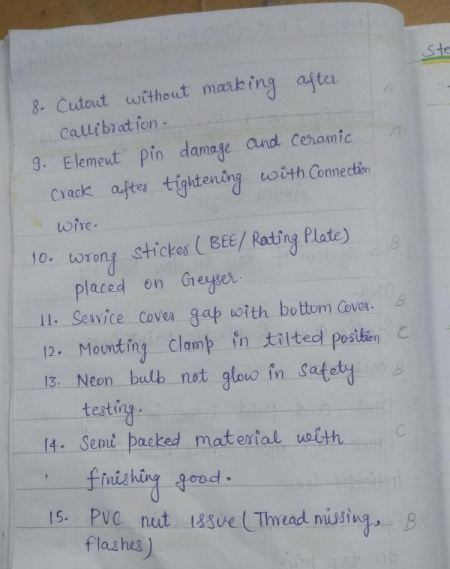 Ste
8. Cutout without marking after A
callibration.
9. Element pin damage and ceramic A
crack after tightening with Connection
wire.
10. wrong sticker ( BEE/ Rating Plate) B
placed on Geyser.
11. Service cover gap with bottom cover. B
12. Mounting clamp in tilted position C
13. Neon bulb not glow in safety B
testing.
14. Semi packed material with C
finishing good.
15. PVC nut issue ( Thread missing, B
flashes)